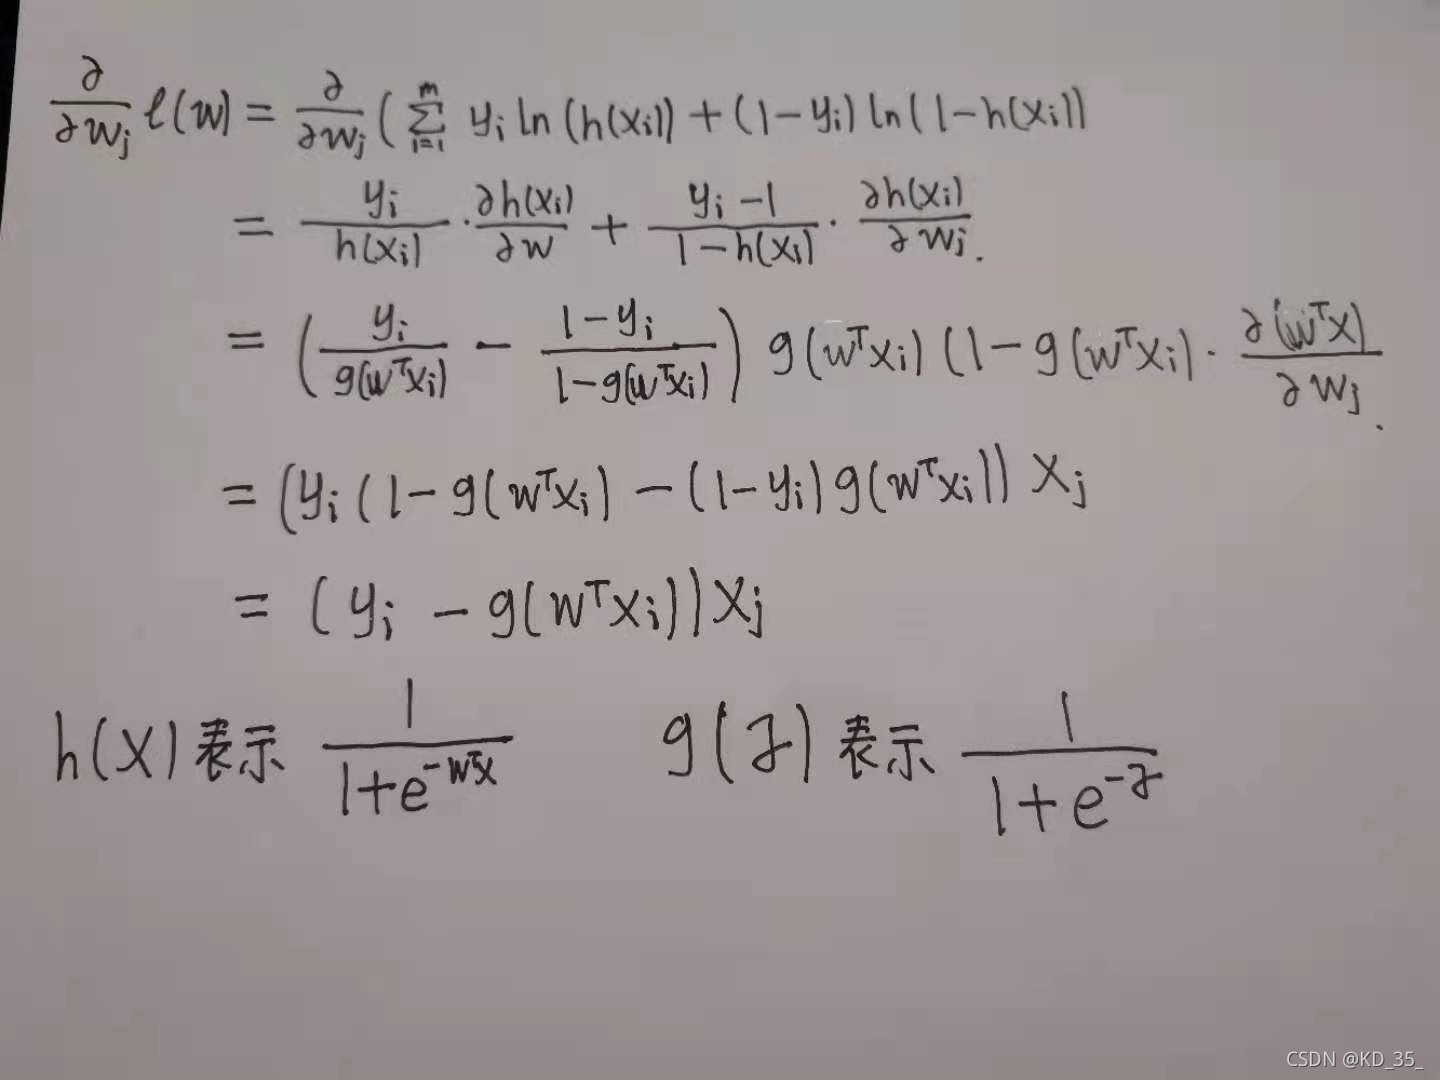 ∂/∂w_j ℓ(w) = ∂/∂w_j ( Σ_{i=1}^{m} y_i ln(h(x_i)) + (1-y_i) ln(1-h(x_i))
= y_i/h(x_i) · ∂h(x_i)/∂w + y_i-1/1-h(x_i) · ∂h(x_i)/∂w_j.
= ( y_i/g(w^Tx_i) - 1-y_i/1-g(w^Tx_i) ) g(w^Tx_i) (1-g(w^Tx_i) · ∂(w^Tx)/∂w_j.
= (y_i (1-g(w^Tx_i) - (1-y_i) g(w^Tx_i)) x_j
= (y_i - g(w^Tx_i)) x_j
h(x) 表示 1/1+e^{-w^Tx} g(z) 表示 1/1+e^{-z}
CSDN @KD_35_